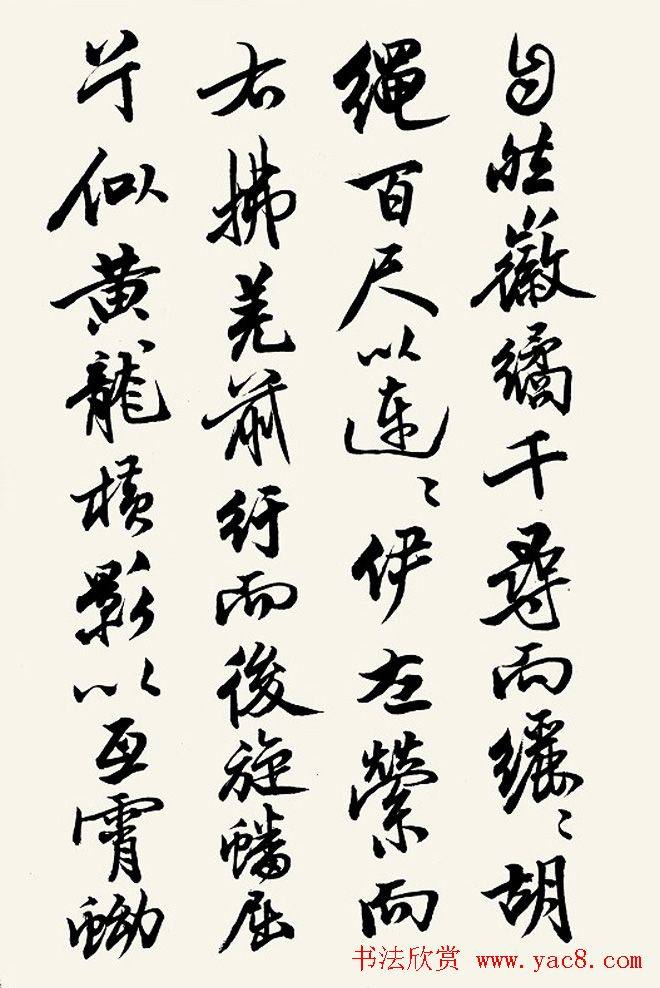 自然徽繘千尋而纚〻胡
繩百尺以連〻伊左縈而
右拂羌前紆而後旋蟠屈
兮似黃龍橫影以亙霄蚴
书法欣赏 www.yac8.com